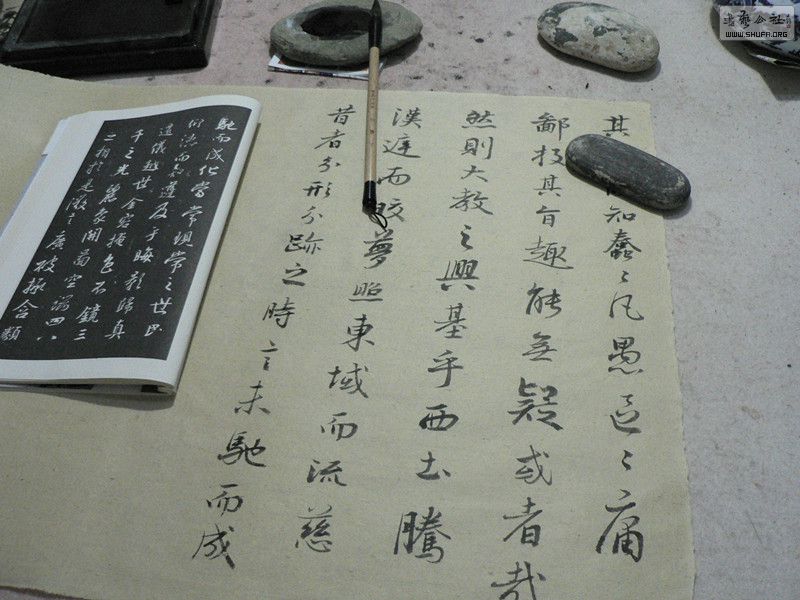 其知蠢々凡愚區々庸
鄙投其旨趣能無疑或者哉
然則大教之興基乎西土騰
漢庭而皎夢照東域而流慈
昔者分形分跡之時言未馳而成
馳而成化當常現常之世民
仰德而知遵及乎晦影歸真
遷儀越世金容掩色不鏡三
千之光麗象開圖空端四八
之相於是微言廣被拯含類
WWW.SHUFA.ORG